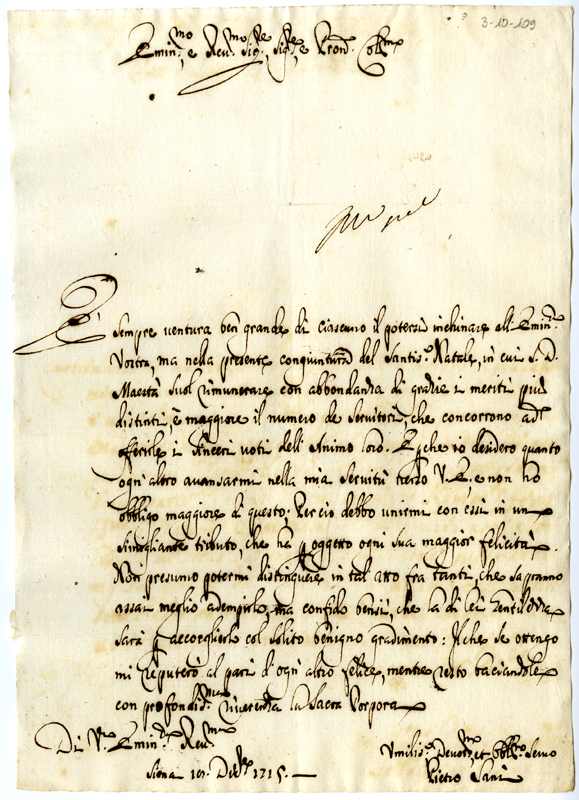 3-10-109
Emin.mo, e Rev.mo Sig.re, Sig.re, e Pron. Coll.mo
È sempre ventura ben grande di ciascuno il potersi inchinare all'Emin.
Vostra, ma nella presente congiuntura del Santis.o Natale, in cui S. D.
Maestà suol rimunerare con abbondanza di grazie i meriti più
distinti, è maggiore il numero de Servitori, che concorrono ad
offerirle i sinceri voti dell'Animo loro. E perche io desidero quanto
ogni altro avansarmi nella mia Servitù verso V. E., e non hò
obbligo maggiore di questo; Perciò debbo unirmi con essi in un
simigliante tributo, che hà p oggetto ogni sua maggior felicità.
Non presumo potermi distinguere in tal atto fra tanti, che sapranno
assai meglio adempirlo, ma confido bensì, che la di lei Gentilezza
sarà p accoglierlo col solito benigno gradimento: Il che se ottengo
mi reputerò al pari di ogni altro felice, mentre resto baciandole
con profondis.ma riverenza la Sacra Porpora
Di V. Emin. Rev.ma
Umilis.o Devot.mo, et Obb.mo Servo
Siena Dec.re 1715.
Pietro Sani